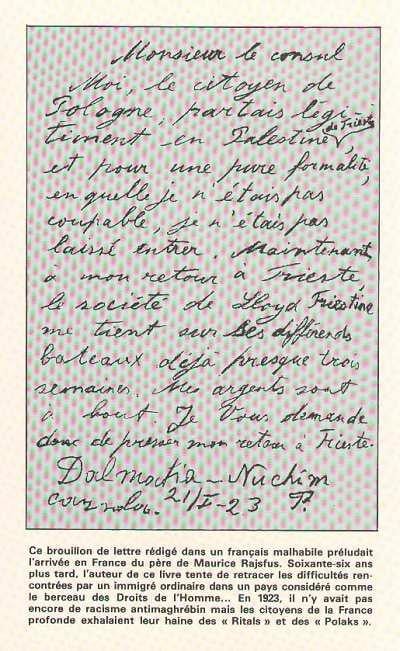 Monsieur le consul
Moi, le citoyen de
Pologne, partais légi-
timent en Palestine, de Trieste
et pour une pure formalité,
en quelle je n'étais pas
coupable, je n'étais pas
laissé entrer. Maintenant,
à mon retour à Trieste,
le société de Lloyd Triestina
me tient sur ses différends
bateaux déjà presque trois
semaines. Mes argents sont
à bout. Je Vous demande
donc de presser mon retour à Trieste.
Dalmatia - Nuchim
21/I-23
Ce brouillon de lettre rédigé dans un français malhabile préludait
l'arrivée en France du père de Maurice Rajsfus. Soixante-six ans
plus tard, l'auteur de ce livre tente de retracer les difficultés ren-
contrées par un immigré ordinaire dans un pays considéré comme
le berceau des Droits de l'Homme... En 1923, il n'y avait pas
encore de racisme antimaghrébin mais les citoyens de la France
profonde exhalaient leur haine des « Ritals » et des « Polaks ».